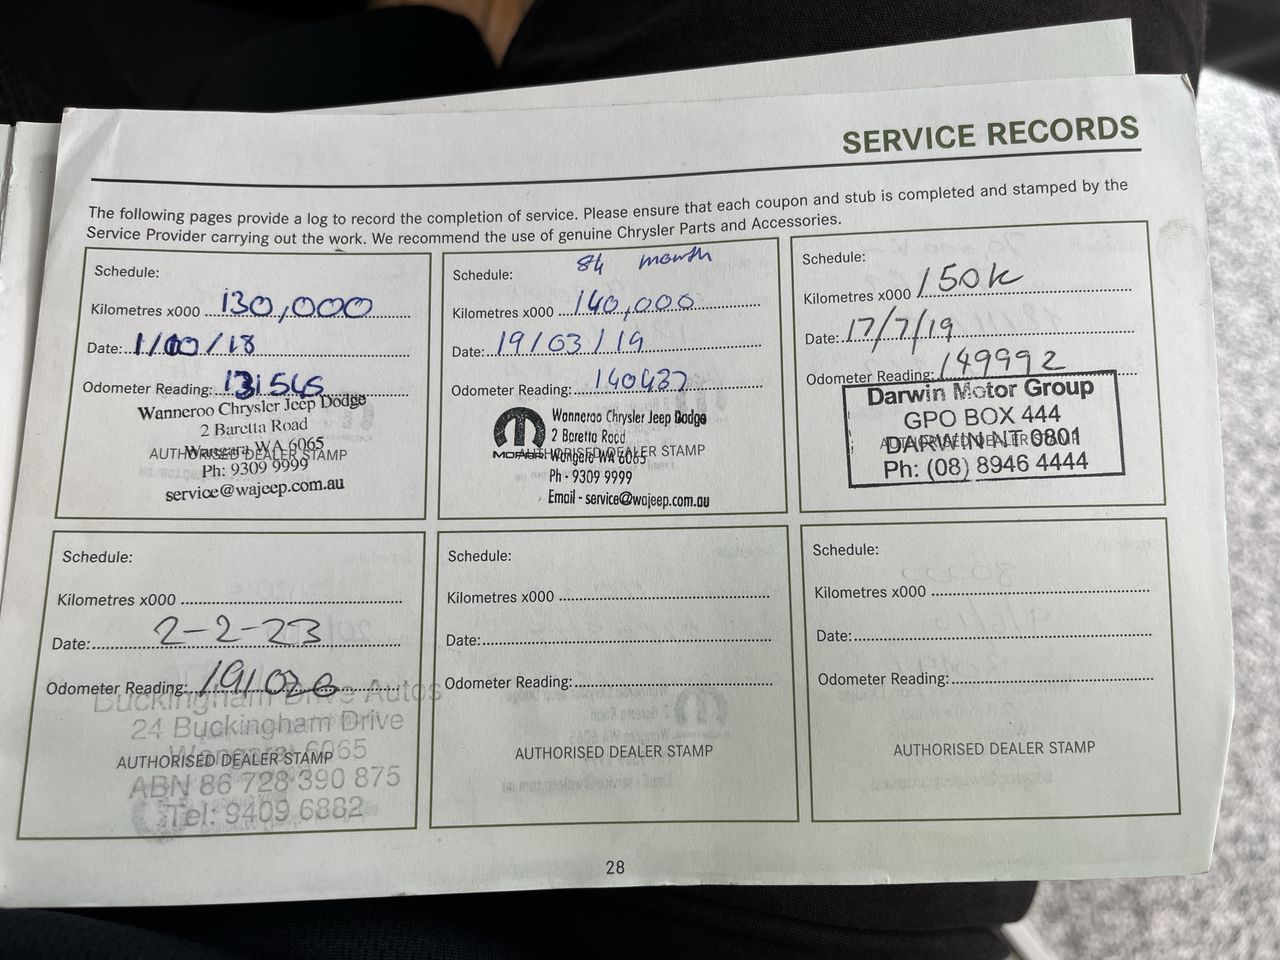 SERVICE RECORDS
The following pages provide a log to record the completion of service. Please ensure that each coupon and stub is completed and stamped by the
Service Provider carrying out the work. We recommend the use of genuine Chrysler Parts and Accessories.
Schedule:
Kilometres x000 130,000
Date: 1/10/18
Odometer Reading: 131545
Wanneroo Chrysler Jeep Dodge
2 Baretta Road
Wangara WA 6065
AUTHORISED DEALER STAMP
Ph: 9309 9999
service@wajeep.com.au
Schedule: 84 month
Kilometres x000 140,000
Date: 19/03/19
Odometer Reading: 140437
Wanneroo Chrysler Jeep Dodge
2 Baretta Road
MOPAR Wangara WA 6065
AUTHORISED DEALER STAMP
Ph - 9309 9999
Email - service@wajeep.com.au
Schedule:
Kilometres x000 150K
Date: 17/7/19
Odometer Reading: 149992
Darwin Motor Group
GPO BOX 444
DARWIN NT 0801
AUTHORISED DEALER STAMP
Ph: (08) 8946 4444
Schedule:
Kilometres x000
Date: 2-2-23
Odometer Reading: 191026
Buckingham Drive Autos
24 Buckingham Drive
Wangara 6065
AUTHORISED DEALER STAMP
ABN 86 728 390 875
Tel: 9409 6882
Schedule:
Kilometres x000
Date:
Odometer Reading:
AUTHORISED DEALER STAMP
Schedule:
Kilometres x000
Date:
Odometer Reading:
AUTHORISED DEALER STAMP
28